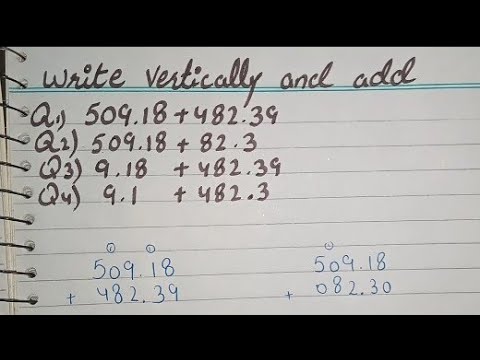 Write vertically and add
Q1) 509.18 + 482.39
Q2) 509.18 + 82.3
Q3) 9.18 + 482.39
Q4) 9.1 + 482.3
① ① ①
509.18 509.18
+ 482.39 + 082.30